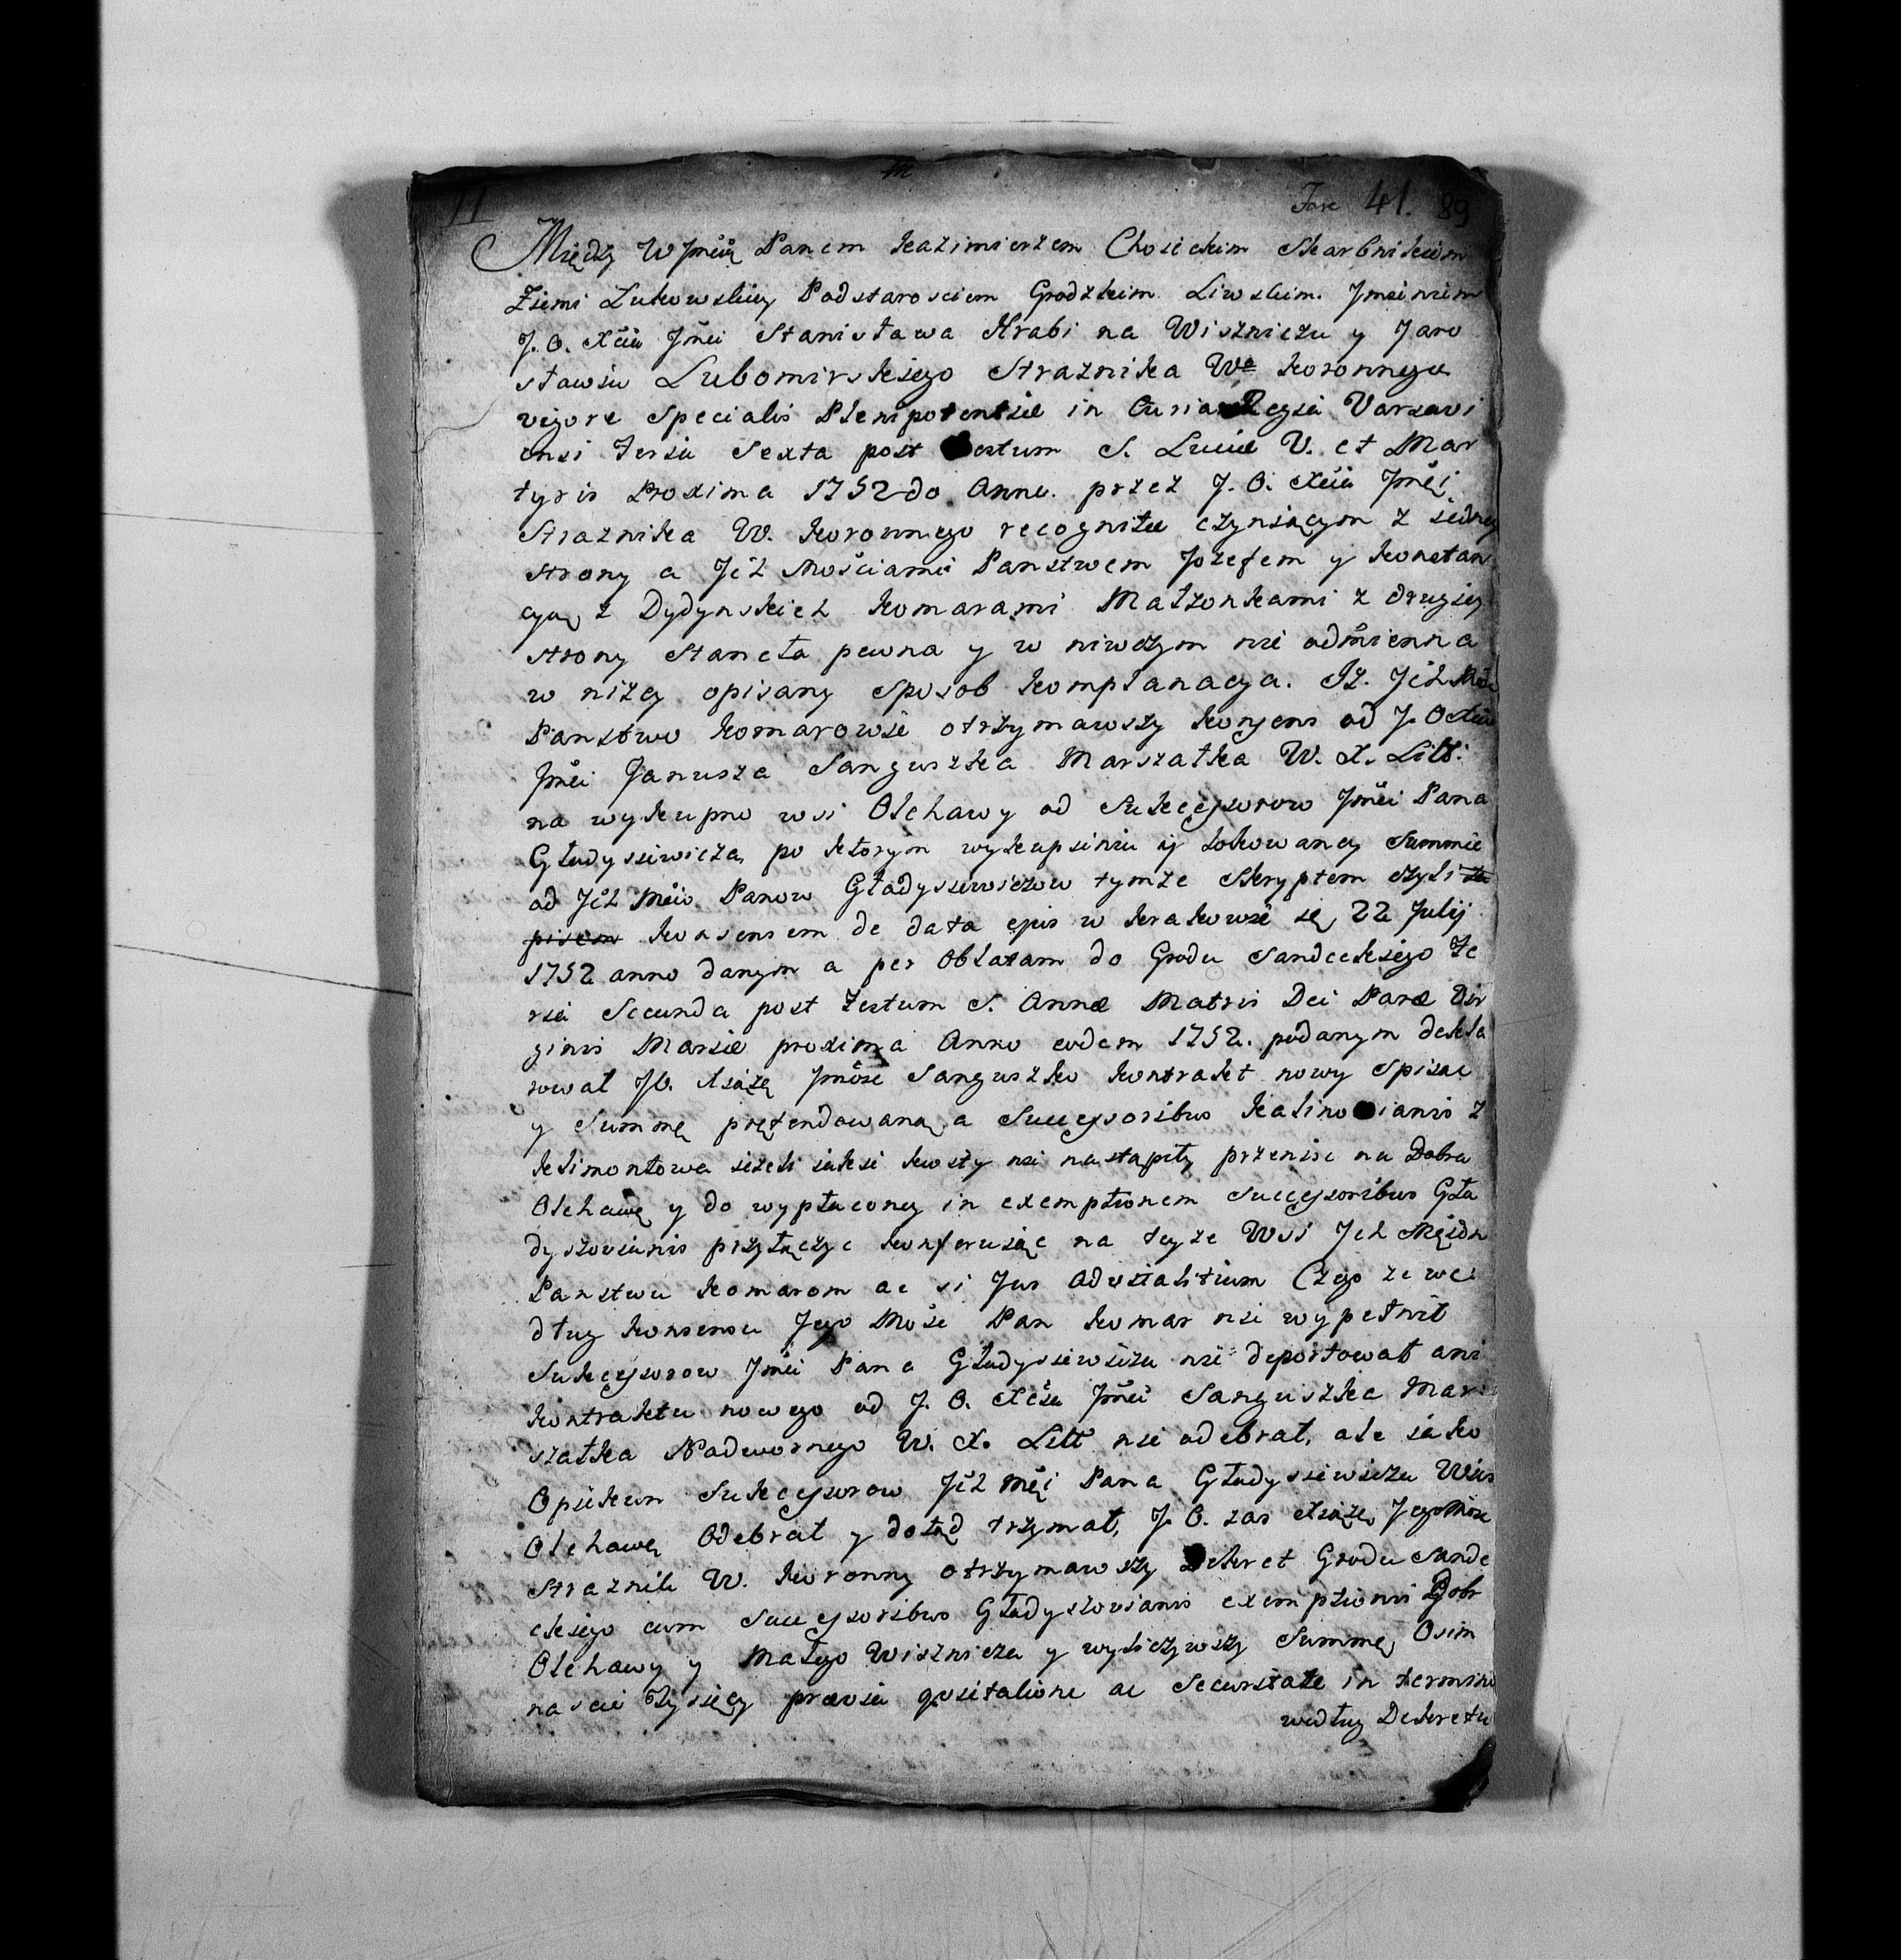 11
Fasc 41. 89
Między WJmćią Panem Kazimierzem Chosickim Skarbnikiem
Ziemi Łukowskiey Podstarosciem Grodzkim Liwskim. Jmieniem
J. O. Xcia Jmći Stanisława Hrabi na Wiszniczu y Jaro
sławiu Lubomirskiego Straznika Wo Koronnego
vigore Specialis Plenipotentiæ in Curia Regia Varsavi
ensi feria Sexta post Festum S. Luciæ V. et Mar
tyris Proxima 1752do Anno. przez J. O. Xcia Jmći
Straznika W. Koronnego recognitæ czyniącym z iedney
strony a Jch Mościami Panstwem Jozefem y Konstan
cyą z Dydynskich Komarami Małzonkami z drugiey
strony Staneła pewna y w niwczym nie odmienna
w nizey opisany Sposob Komplanacya. Iz. Jch Mść
Panstwo Komarowie otrzymawszy Konsens od J. O Xcia
Jmći Janusza Sanguszka Marszałka W. X. Litt:
na wykupno wsi Olchawy od Sukcessorow Jmći Pana
Gładysiewicza, po ktorym wykupieniu y lokowaney Summie
od Jch Mćiow Panow Gładysiewiczow tymze Skryptem czyli
pisem Konsensem de data ejus w Krakowie się 22 Julij
1752 anno danym a per Oblatam do Grodu Sandeckiego Fe
ria Secunda post Festum S. Annæ Matris Dei Paræ Vir
ginis Mariæ proxima Anno eodem 1752. podanym dekla
rował JO. Xsiązę Jmćse Sanguszko Kontrakt nowy Spisac
y Summę prętendowaną a Successoribus Kalinowianis z
Klimontowa iezeli iakie kwoty nie nastąpiły przeniesc na Dobra
Olchawę y do wypłaconey in exemptionem Successoribus Gła
dyszovianis przyłączyc konferuiąc na teyze Wsi Jch Mściom
Panstwu Komarom ac si Jus Advitalitium Czego ze we
dług Konsensu Jego Mość Pan Komar nie wypełnił
Sukcessorow Jmći Pana Gładysiewicza nie deportował ani
Kontraktu nowego od J. O. Xcia Jmći Sanguszka Mar
szałka Nadwornego W. X. Litt nie odebrał, ale iako
Opiekun Sukcessorow Jch Mći Pana Gładysiewicza Wies
Olchawę Odebrał y dotąd trzymał, J. O. zas Xsiąze Jegomosc
Straznik W. Koronny otrzymawszy Dekret Grodu Sande
ckiego cum Successoribus Gładyszovianis exemptionis Dobr
Olchawy y Małego Wisznicza y wyliczywszy Summę Osim
nascie Tysięcy prævia quietatione ac Securitate in termino
według Dekretu